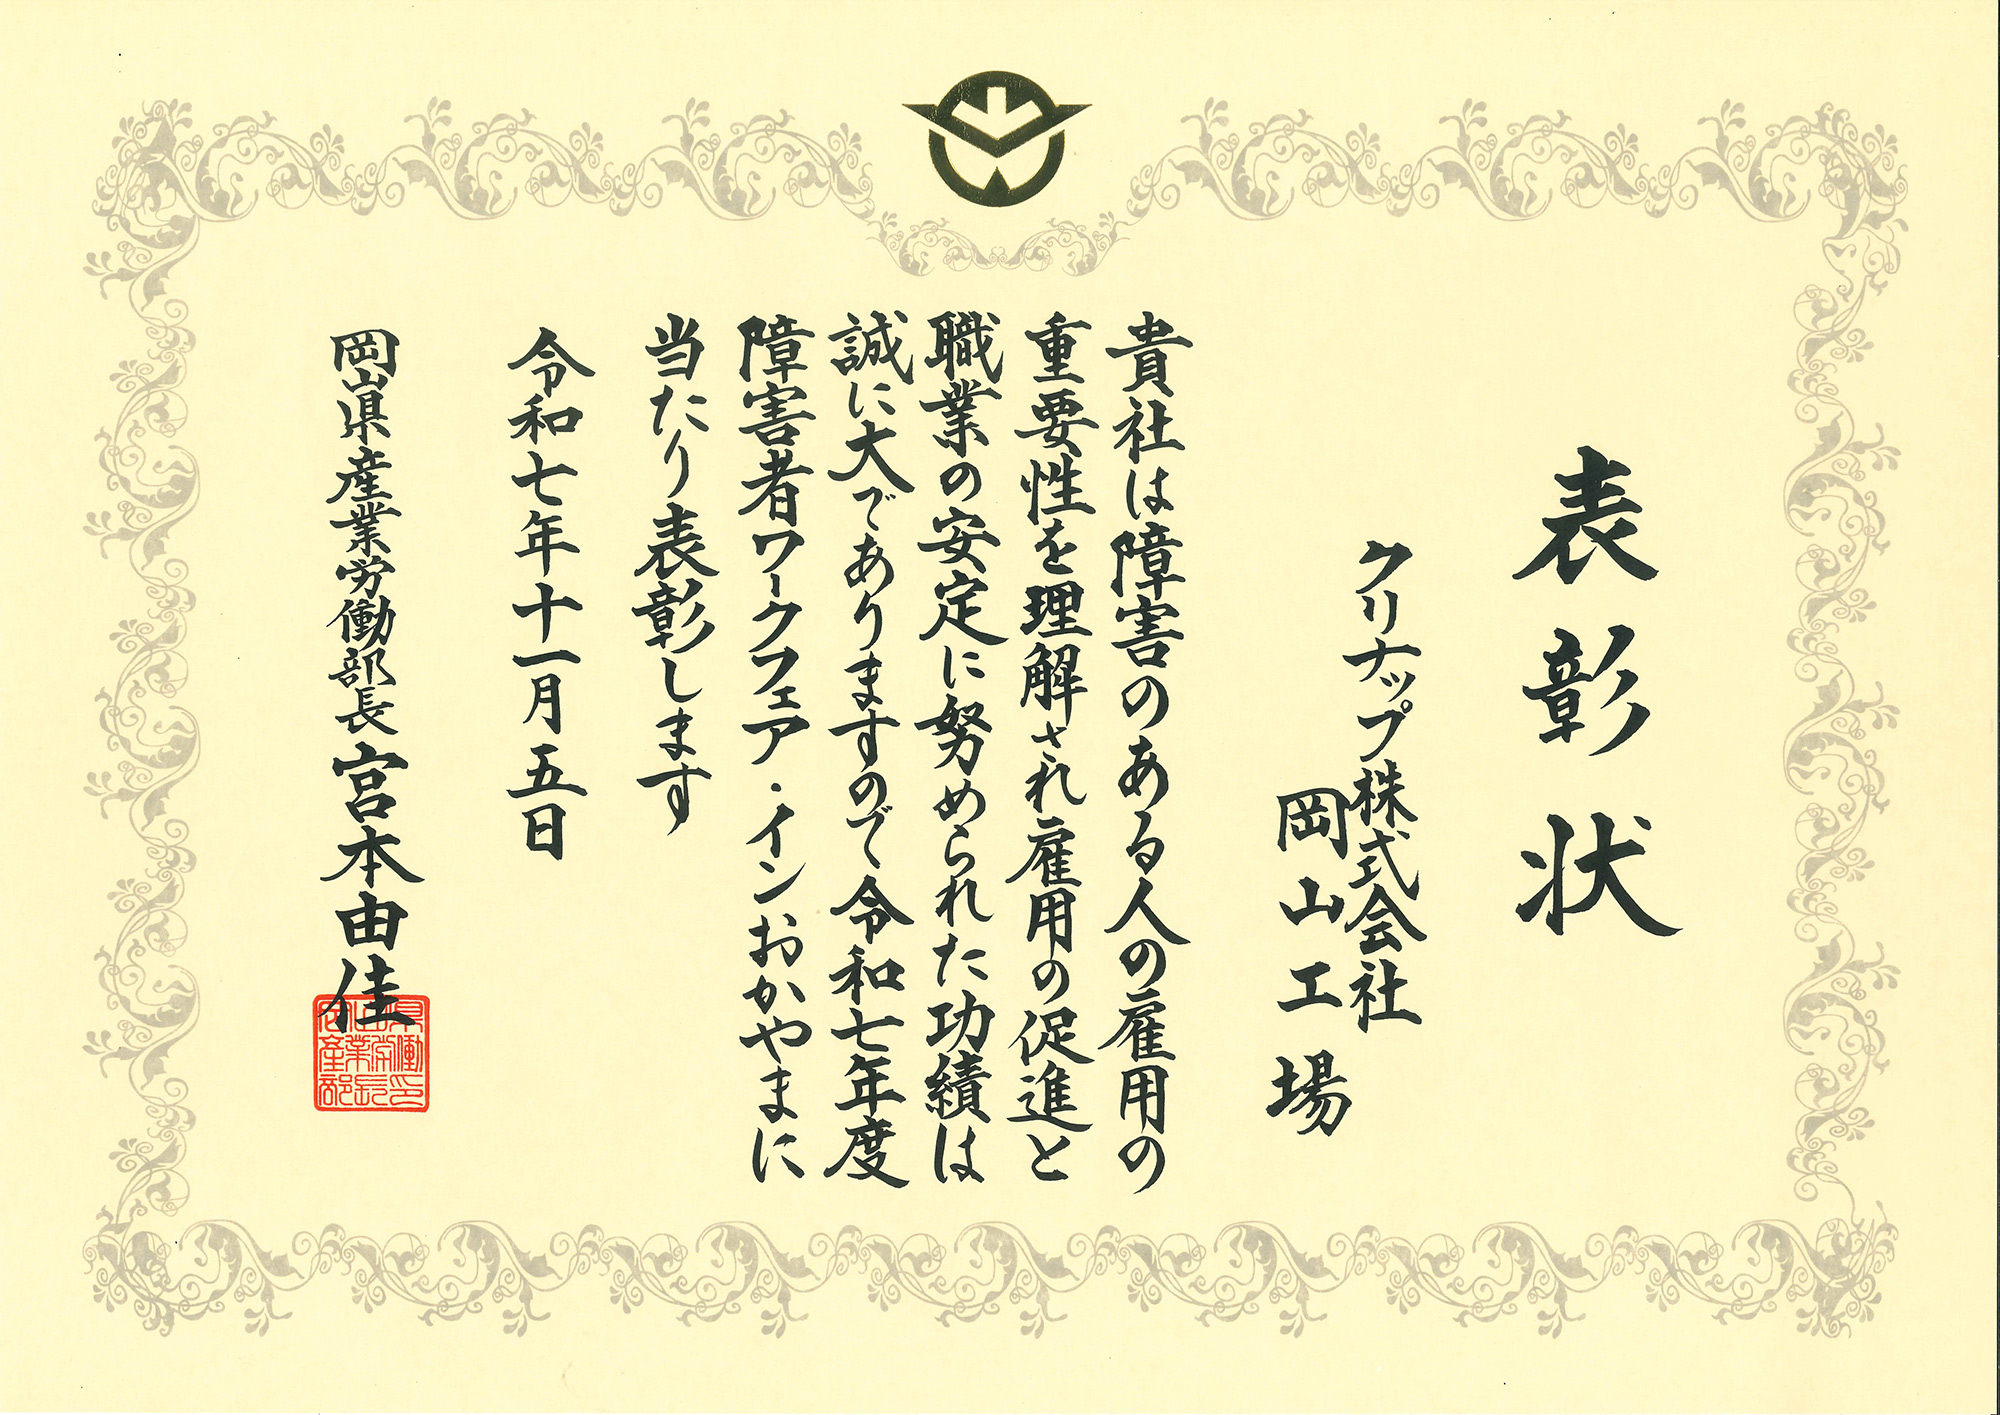 表彰状
クリナップ株式会社
岡山工場
貴社は障害のある人の雇用の
重要性を理解され雇用の促進と
職業の安定に努められた功績は
誠に大でありますので令和七年度
障害者ワークフェア・インおかやまに
当たり表彰します
令和七年十一月五日
岡山県産業労働部長 宮本由佳